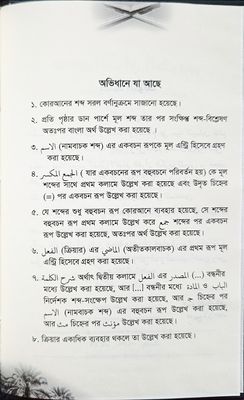 অভিধানে যা আছে
১. কোরআনের শব্দ সরল বর্ণানুক্রমে সাজানো হয়েছে।
২. প্রতি পৃষ্ঠার ডান পার্শে মূল শব্দ তার পর সংক্ষিপ্ত শব্দ-বিশ্লেষণ
অতঃপর বাংলা অর্থ উল্লেখ করা হয়েছে ।
৩. الاسم (নামবাচক শব্দ) এর একবচন রূপকে মূল এন্ট্রি হিসেবে গ্রহণ
করা হয়েছে।
৪. الجمع المكسر ( যার একবচনের রূপ বহুবচনে পরিবর্তন হয়) কে মূল
শব্দের সাথে প্রথম কলামে উল্লেখ করা হয়েছে এবং উদ্বৃত চিহ্নের
(=) পর একবচন রূপ উল্লেখ করা হয়েছে।
৫. যে শব্দের শুধু বহুবচন রূপ কোরআনে ব্যবহার হয়েছে, সে শব্দের
বহুবচন রূপ প্রথম কলামে উল্লেখ করে جمع শব্দের পর একবচন
রূপ উল্লেখ করা হয়েছে, অতঃপর অর্থ উল্লেখ করা হয়েছে।
৬. الفعل (ক্রিয়ার) এর الماضي (অতীতকালবাচক) এর প্রথম রূপ মূল
এন্ট্রি হিসেবে গ্রহণ করা হয়েছে।
৭. شرح الكلمة অর্থাৎ দ্বিতীয় কলামে الفعل এর المصدر (...) বন্ধনীর
মধ্যে উল্লেখ করা হয়েছে, আর [...] বন্ধনীর মধ্যে المادة ও الباب
নির্দেশক শব্দ-সংক্ষেপ উল্লেখ করা হয়েছে, আর ج চিহ্নের পর
الاسم (নামবাচক শব্দ) এর বহুবচন রূপ উল্লেখ করা হয়েছে,
আর مث চিহ্নের পর مؤنث উল্লেখ করা হয়েছে।
৮. ক্রিয়ার একাধিক ব্যবহার থাকলে তা উল্লেখ করা হয়েছে।